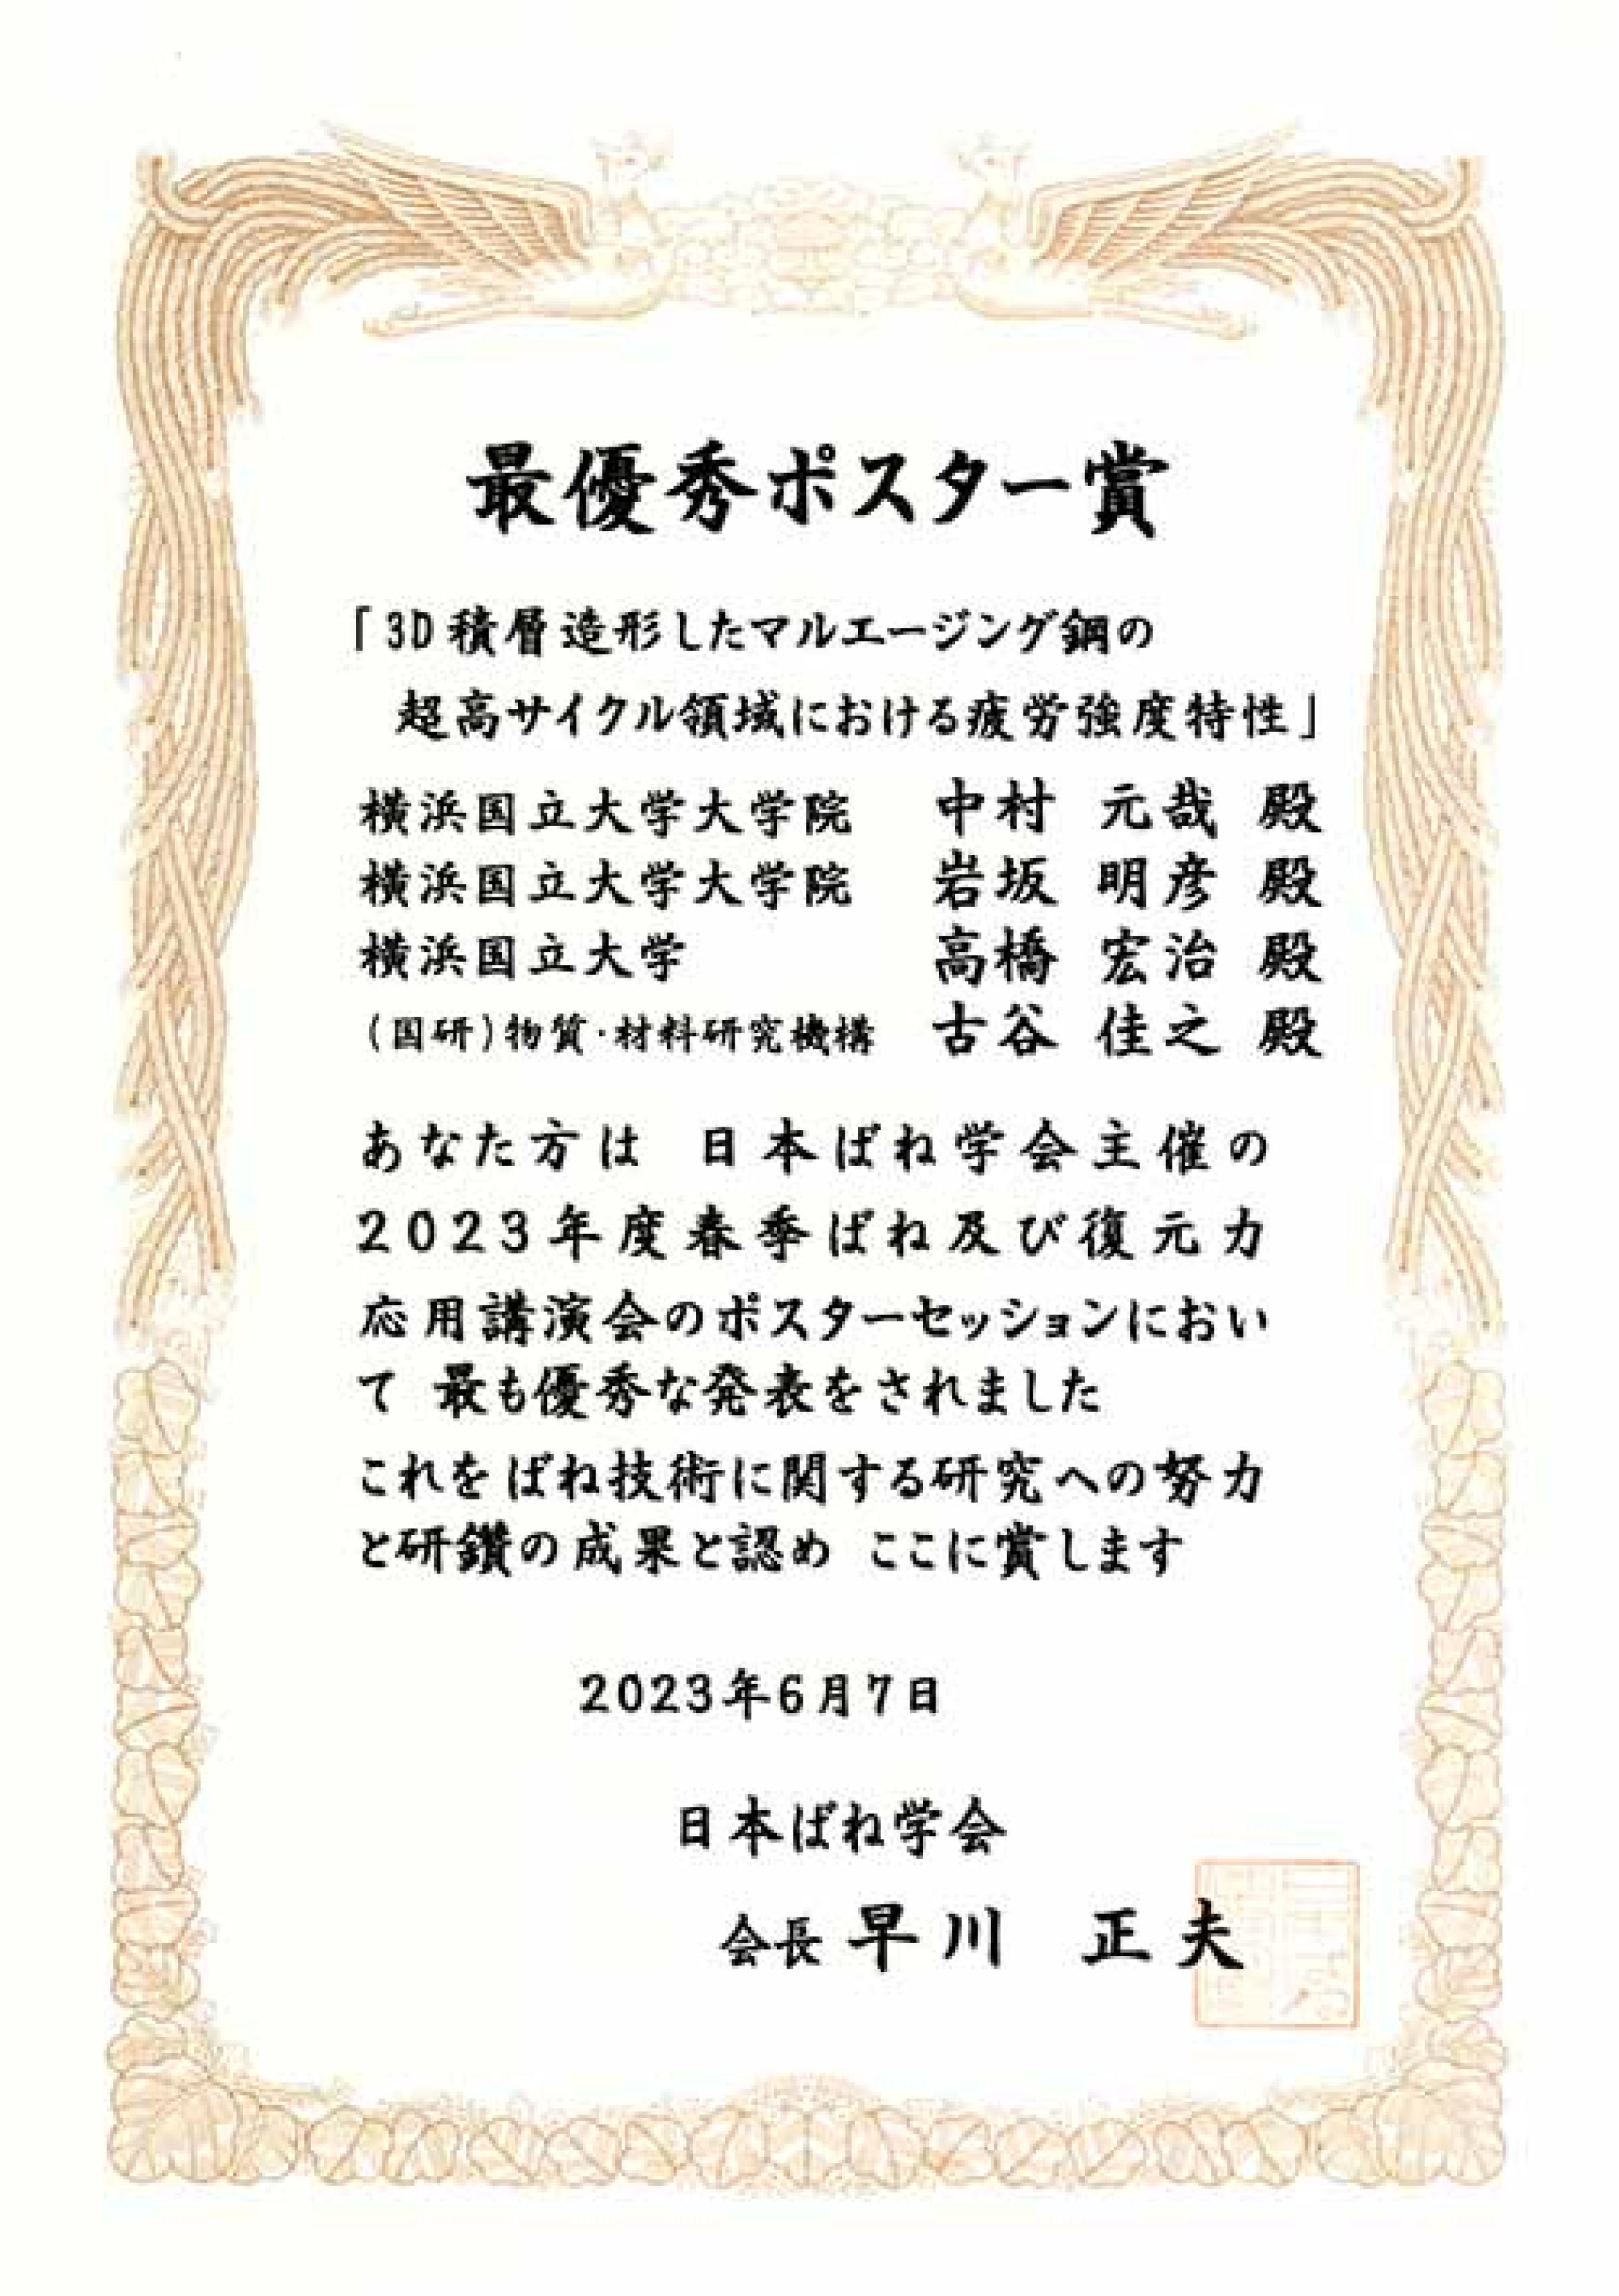 最優秀ポスター賞
「3D積層造形したマルエージング鋼の
超高サイクル領域における疲労強度特性」
横浜国立大学大学院 中村 元哉 殿
横浜国立大学大学院 岩坂 明彦 殿
横浜国立大学 高橋 宏治 殿
(国研)物質・材料研究機構 古谷 佳之 殿
あなた方は 日本ばね学会主催の
2023年度春季ばね及び復元力
応用講演会のポスターセッションにおい
て 最も優秀な発表をされました
これをばね技術に関する研究への努力
と研鑽の成果と認め ここに賞します
2023年6月7日
日本ばね学会
会長 早川 正夫